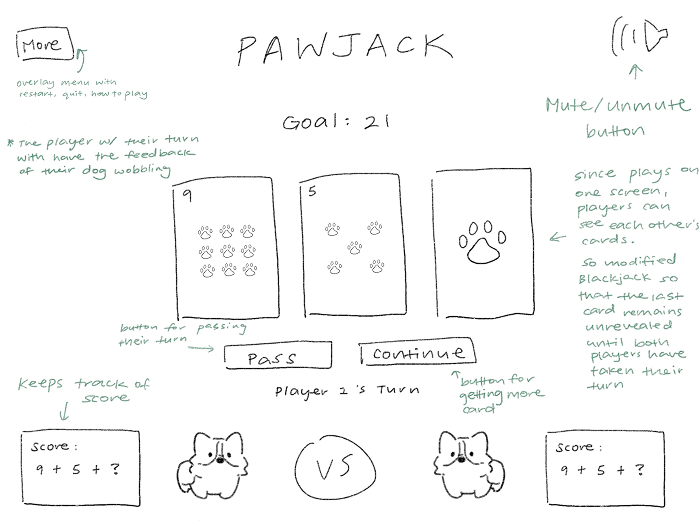 More
PAWJACK
overlay menu with
restart, quit, how to play
Mute/unmute
button
Goal: 21
* The player w/ their turn
with have the feedback
of their dog wobbling
9
5
since plays on
one screen,
players can
see each other's
cards.
so modified
Blackjack so
that the last
card remains
unrevealed
until both
players have
taken their
turn
button for passing
their turn
Pass
Continue
Player 2's Turn
button for
getting more
card
Keeps track of
score
score:
9 + 5 + ?
VS
score:
9 + 5 + ?